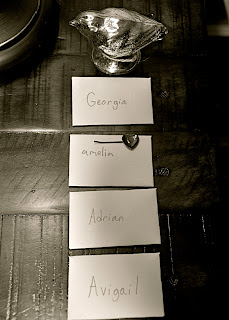 Georgia
amelin
Adrian
Avigail